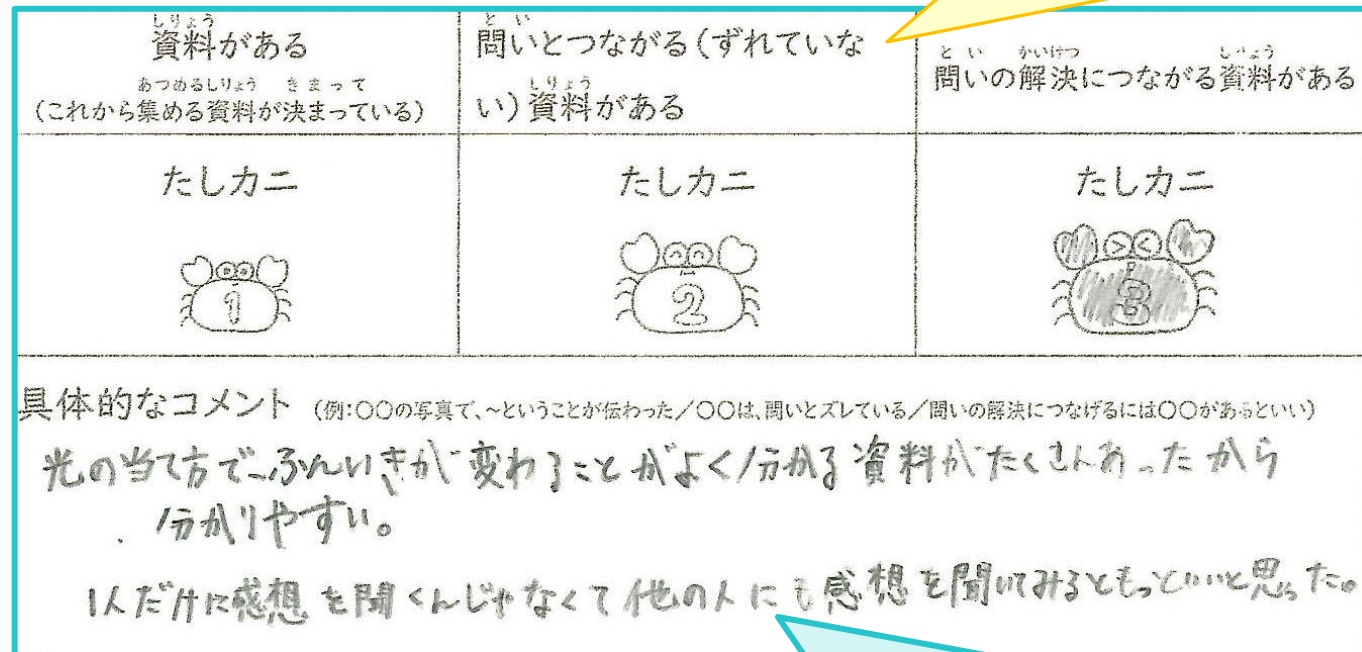 しりょう
資料がある
あつめるしりょう きまって
(これから集める資料が決まっている)
とい
問いとつながる(ずれていな
しりょう
い)資料がある
とい かいけつ しりょう
問いの解決につながる資料がある
たしカニ
1
たしカニ
2
たしカニ
3
具体的なコメント (例:○○の写真で、~ということが伝わった/○○は、問いとズレている/問いの解決につなげるには○○があるといい)
光の当て方で、ふんいきが変わることがよく分かる資料がたくさんあったから
分かりやすい。
1人だけに感想を聞くんじゃなくて他の人にも感想を聞いてみるともっといいと思った。